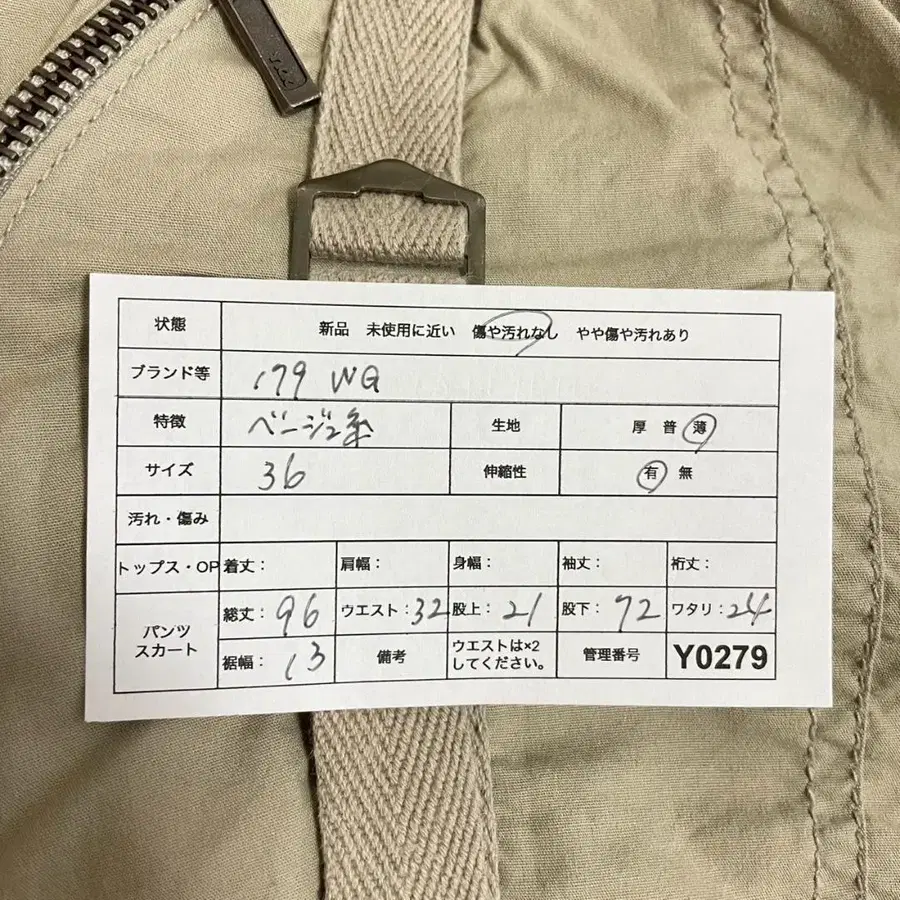 YKK
状態 新品 未使用に近い 傷や汚れなし やや傷や汚れあり
ブランド等 179 WG
特徴 ベージュ系 生地 厚 普 薄
サイズ 36 伸縮性 有 無
汚れ・傷み
トップス・OP 着丈： 肩幅： 身幅： 袖丈： 裄丈：
パンツ
スカート
総丈：96 ウエスト：32 股上：21 股下：72 ワタリ：24
裾幅：13 備考 ウエストは×2
してください。
管理番号 Y0279